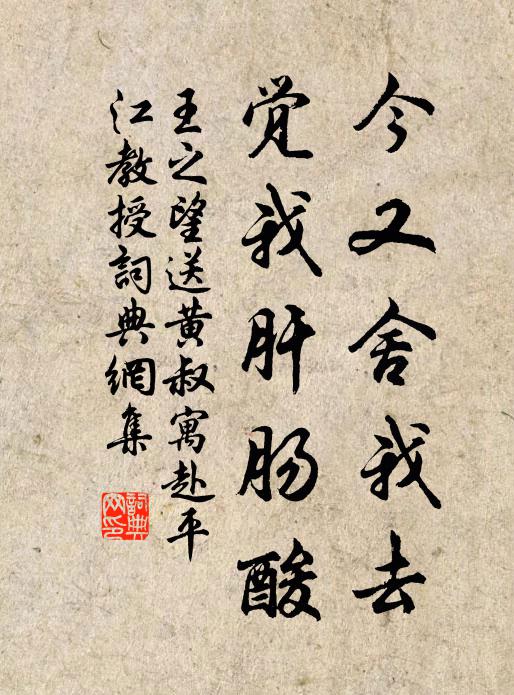 今又舍我去
觉我肝肠酸
王之望送黄叔寓赴平
江教授詞典網集
詞典
网印